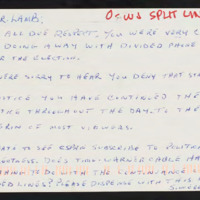 R. LAMB, O=WJ SPLIT LIN
ALL DUE RESPECT. YOU WERE VERY C
DOING AWAY WITH DIVIDED PHONE
THE ELECTION.
SORRY TO HEAR YOU DENY THAT STA
YOU HAVE CONTINUED THE
THROUGHOUT THE DAY. TO THE
OF MOST VIEWERS.
TO SEE CSPAN SUBSCRIBE TO POLITICA
DOES TIME-WARNER CABLE HA
TO DO WITH THE CONTINUANCE
LINES? PLEASE DISPENSE WITH THIS P
SINCER